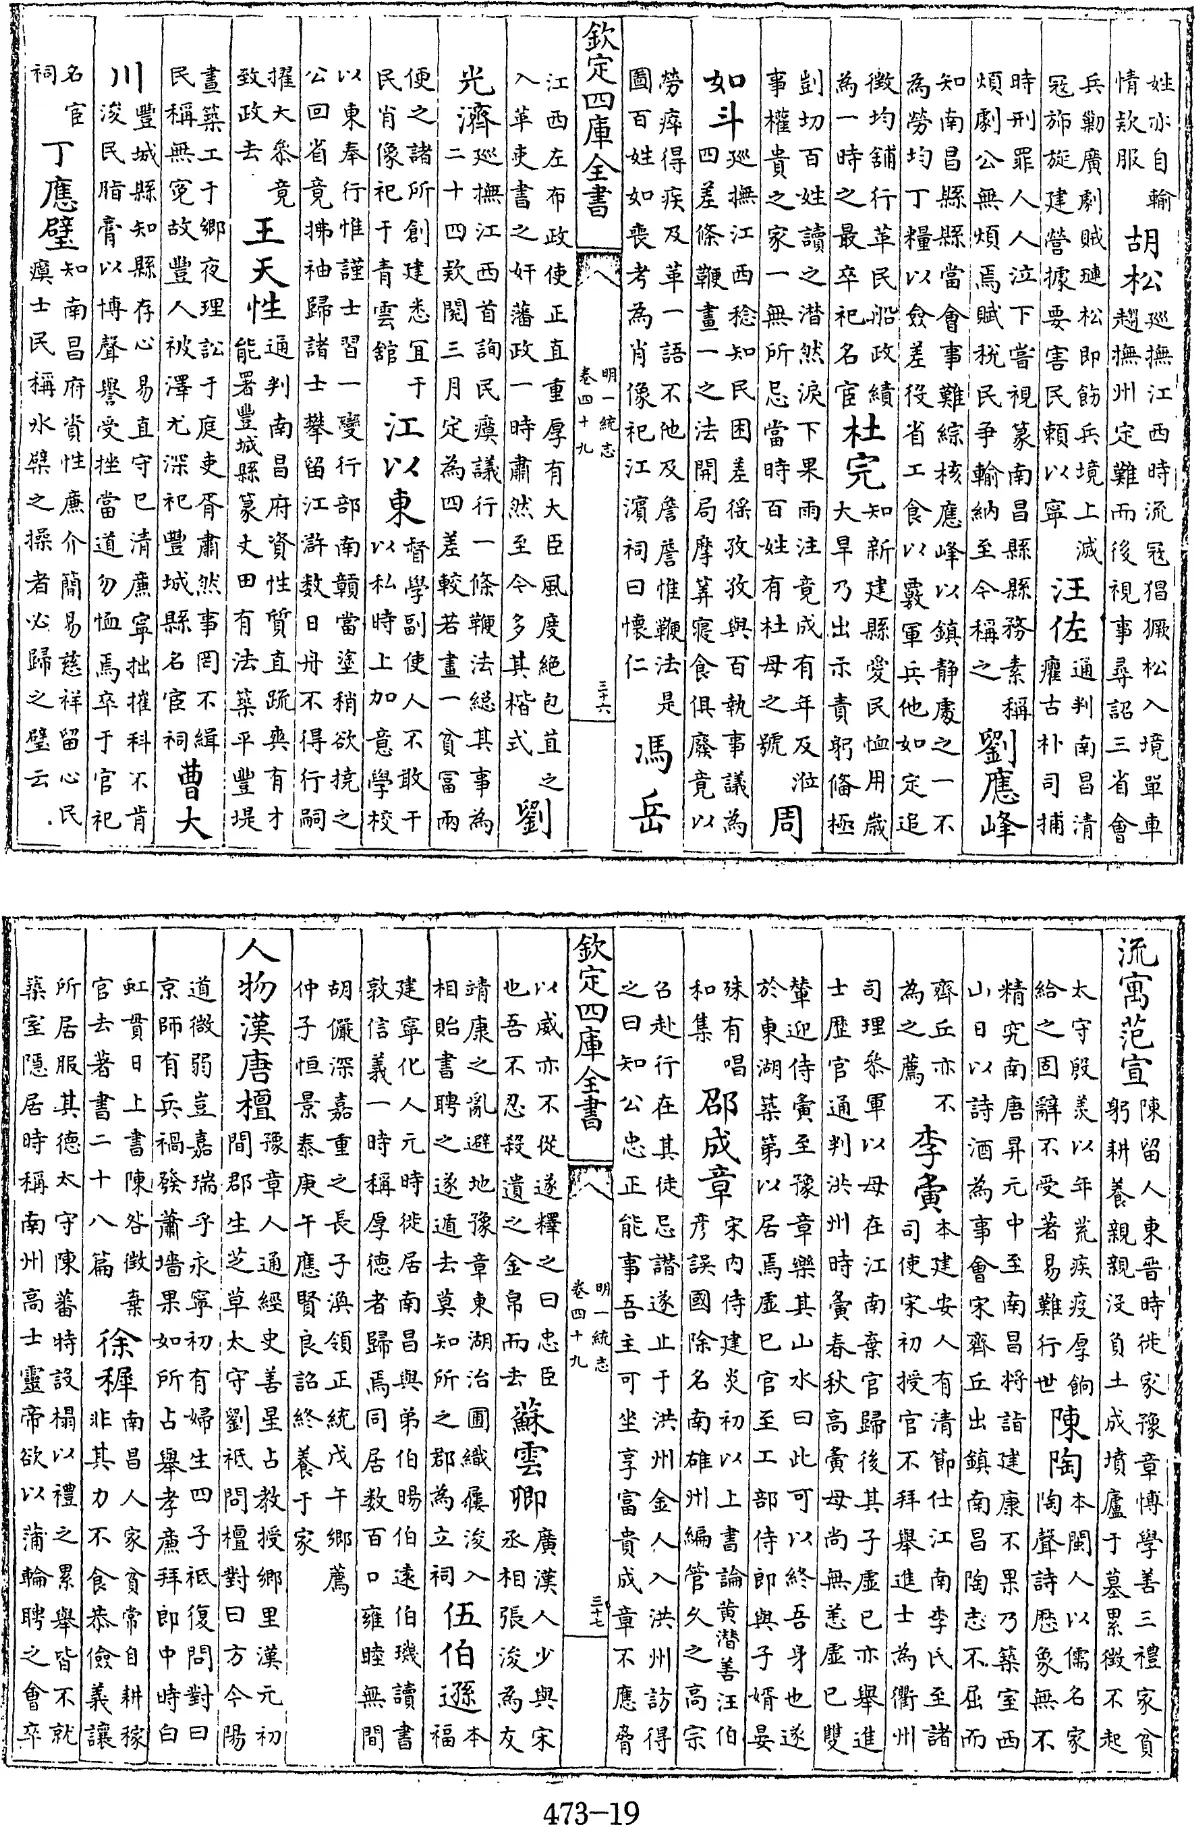 姓亦自輸情欵服胡松巡撫江西時流冦猖獗松入境單車趨撫州定難而後視事尋詔三省會
兵勦廣劇賊璉松即飭兵境上滅冦旆旋建營據要害民賴以寧汪佐通判南昌清癯古朴司捕
時刑罪人人泣下嘗視篆南昌縣縣務素稱煩劇公無煩焉賦稅民爭輸納至今稱之劉應峰
知南昌縣縣當會事難綜核應峰以鎮静處之一不為勞均丁糧以僉差役省工食以覈軍兵他如定追
徵均鋪行革民船政績為一時之最卒祀名宦杜完知新建縣愛民恤用歲大旱乃出示責躬脩極
剴切百姓讀之潸然淚下果雨注竟成有年及涖事權貴之家一無所忌當時百姓有杜母之號周
如斗巡撫江西稔知民困差徭孜孜與百執事議為四差條鞭畫一之法開局摩筭寢食俱廢竟以
勞瘁得疾及革一語不他及詹詹惟鞭法是圖百姓如喪考為肖像祀江濱祠曰懷仁馮岳
欽定四庫全書 明一統志 卷四十九 三十六
江西左布政使正直重厚有大臣風度絶包苴之入革吏書之奸藩政一時肅然至今多其楷式劉
光濟巡撫江西首詢民瘼議行一條鞭法總其事為二十四欵閲三月定為四差較若畫一貧冨兩
便之諸所創建悉冝于民肖像祀于青雲舘江以東督學副使人不敢干以私時上加意學校
以東奉行惟謹士習一變行部南贛當塗稍欲撓之公回省竟拂袖歸諸士攀留江滸数日舟不得行嗣
擢大叅竟致政去王天性通判南昌府資性質直疏爽有才能署豐城縣篆丈田有法築平豐堤
畫築工于鄉夜理訟于庭吏胥肅然事罔不緝民稱無寃故豐人被澤尤深祀豐城縣名宦祠曹大
川豐城縣知縣存心易直守已清廉寧拙摧科不肯浚民脂膏以博聲譽受挫當道勿恤焉卒于官祀
名宦祠丁應璧知南昌府資性廉介簡易慈祥留心民瘼士民稱氷櫱之操者必歸之璧云
流寓范宣陳留人東晉時徙家豫章博學善三禮家貧躬耕養親親没負土成墳廬于墓累徵不起
太守殷羨以年荒疾疫厚餉給之固辭不受著易難行世陳陶本閩人以儒名家陶聲詩歴象無不
精究南唐昇元中至南昌將詣建康不果乃築室西山日以詩酒為事會宋齊丘出鎮南昌陶志不屈而
齊丘亦不為之薦李寅本建安人有清節仕江南李氏至諸司使宋初授官不拜舉進士為衢州
司理叅軍以母在江南棄官歸後其子虛已亦舉進士歴官通判洪州時寅春秋高寅母尚無恙虛已雙
輦迎侍寅至豫章樂其山水曰此可以終吾身也遂於東湖築第以居焉虛已官至工部侍郎與子婿晏
殊有唱和集邵成章宋内侍建炎初以上書論黄潛善汪伯彦誤國除名南雄州編管久之高宗
召赴行在其徒忌譖遂止于洪州金人入洪州訪得之曰知公忠正能事吾主可坐享富貴成章不應脅
欽定四庫全書 明一統志 卷四十九 三十七
以威亦不從遂釋之曰忠臣也吾不忍殺遺之金帛而去蘇雲卿廣漢人少與宋丞相張浚為友
靖康之亂避地豫章東湖治圃織屨浚入相貽書聘之遂遁去莫知所之郡為立祠伍伯遜本福
建寧化人元時徙居南昌與弟伯暘伯遠伯璣讀書敦信義一時稱厚德者歸焉同居数百口雍睦無間
胡儼深嘉重之長子渙領正統戊午鄉薦仲子恒景泰庚午應賢良詔終養于家
人物漢唐檀豫章人通經史善星占教授鄉里漢元初間郡生芝草太守劉祇問檀對曰方今陽
道微弱豈嘉瑞乎永寧初有婦生四子祇復問對曰京師有兵禍發蕭墻果如所占舉孝廉拜郎中時白
虹貫日上書陳咎徵棄官去著書二十八篇徐穉南昌人家貧常自耕稼非其力不食恭儉義讓
所居服其德太守陳蕃特設榻以禮之累舉皆不就築室隠居時稱南州高士靈帝欲以蒲輪聘之會卒
473-19